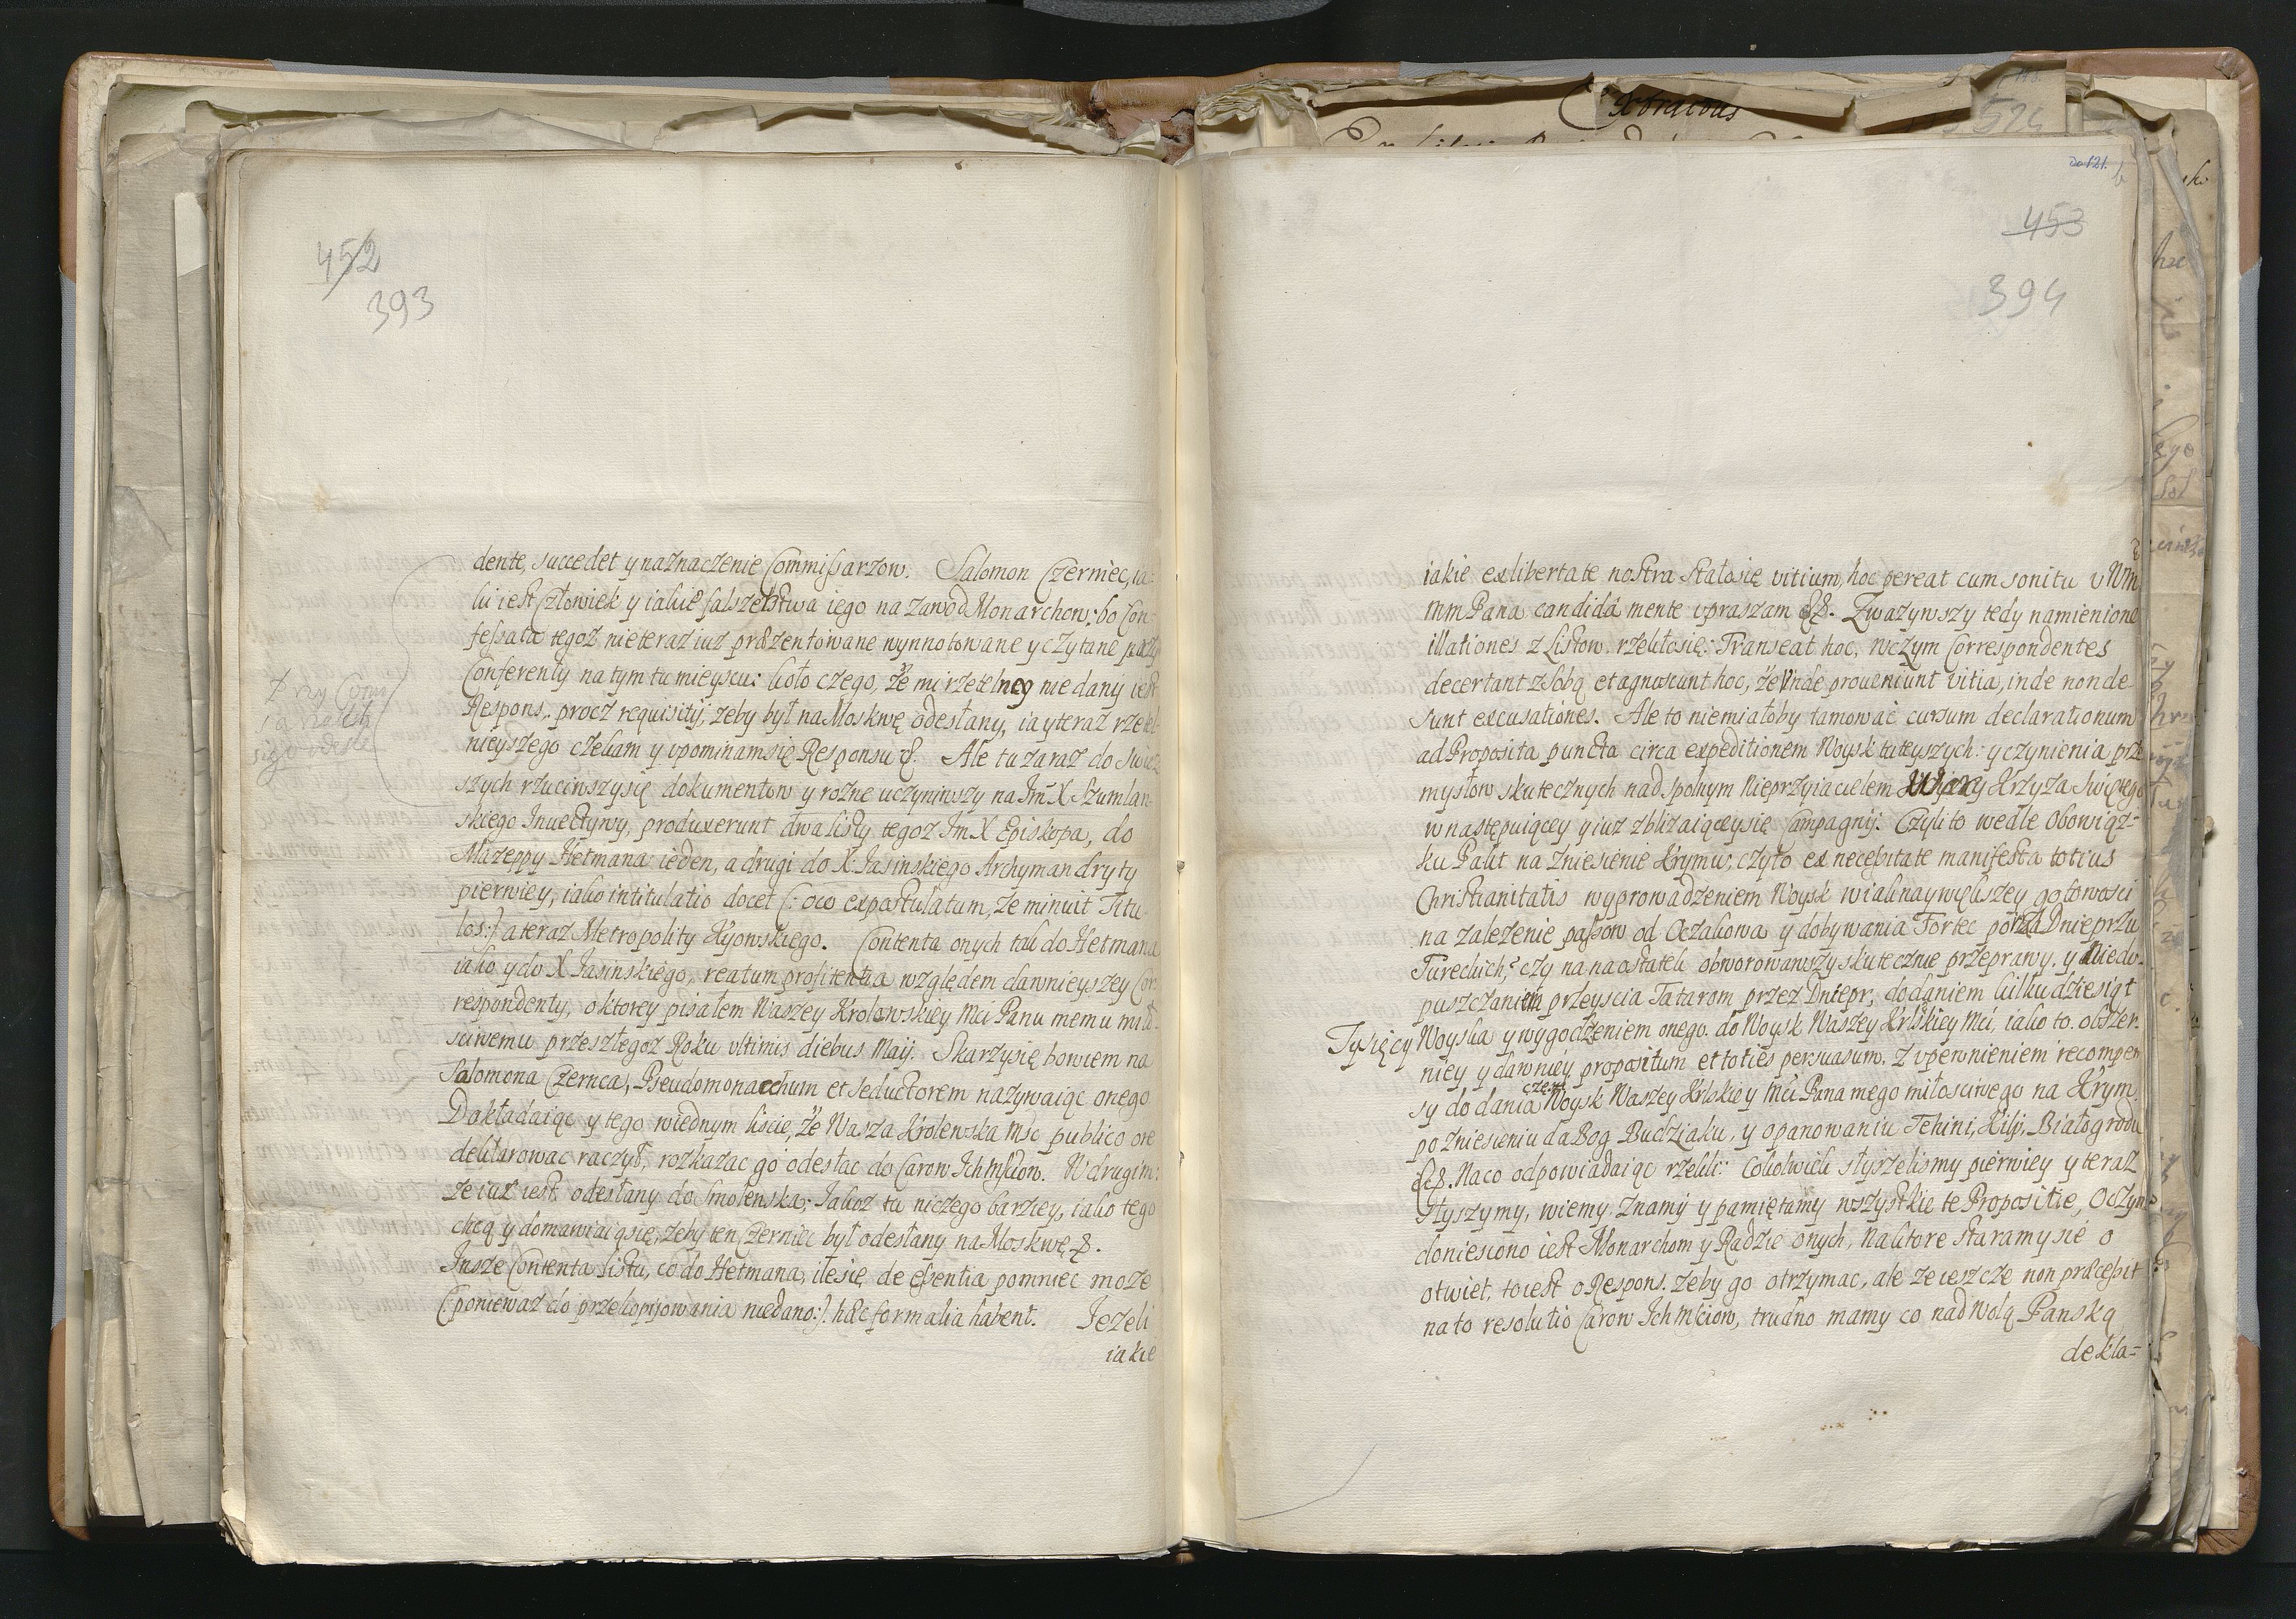 452
393
dente, succedet y naznaczenie Commissarzow. Salomon Czerniec, ia-
ki iest Człowiek y iakie falszerstwa iego na zawod Monarchow: bo Con-
fessata tegoz nie teraz iuz prezentowane wynnotowane y czytane przy
Conferenty na tym tu mieyscu: koło czego, że mi rzetelneg nie dany iest
Respons, procz requisitij, zeby był na Moskwę odesłany, ia y teraz rzetel-
nieyszego czekam y upominam się Responsu &. Ale tu zaraz do swiez
szych rzuciwszy się dokumentow y rozne uczyniwszy na Jm X Szumlan-
skiego Inuectywy, produxerunt dwa listy tegoz Jm X Episkopa, do
Mazeppy Hetmana ieden, a drugi do X. Jasinskiego Archymandryty
pierwiey, iako intitulatio docet (: oco expostulatum, że minuit Titu-
los:) a teraz Metropolity Kyowskiego. Contenta onych tak do Hetmana
iako y do X Jasinskiego, reatum profitentia względem dawnieyszey Cor-
respondenty, o ktorey pisałem Waszey Krolowskiey Mci Panu memu miło-
sciwemu przeszłegoz Roku ultimis diebus Maij. Skarzy się bowiem na
Salomona Czernca, Pseudomonacchum et Seductorem nazywaiąc onego
Dokładaiąc y tego w iednym liscie, że Wasza Krolewska Msc publico ore
deklarowac raczył, rozkazac go odesłac do Carow Ichmsciow. W drugim:
ze iuz iest odesłany do Smolenska; Jakoz tu niczego barziey, iako tego
chcą y domawiaią się, zeby ten Czerniec był odesłany na Moskwę &.
Insze Contenta listu, co do Hetmana, ile się de essentia pomniec moze
(: poniewaz do przekopijowania nie dano:) hæc formalia habent. Jezeli
iakie
Do 121.
453
394
iakie ex libertate nostra stało się vitium, hoc pereat cum sonitu v Wm
mm Pana candidâ mente upraszam &&. Zwazywszy tedy namienione
illationes z Listow. rzekło się: Transeat hoc, w czym Correspondentes
decertant z sobą et agnoscunt hoc, że unde proueniunt vitia, inde non de-
sunt excusationes. Ale to nie miałoby tamować cursum declarationum
ad Proposita puncta circa expeditionem Woysk tuteyszych: y czynienia prze
mysłow skutecznych nad spolnym Nieprzyiacielem Krzyża Swiętego
w następuiącey y iuz zblizaiącey się Campagnij. Czyli to wedle Obowiąz-
ku Pakt na zniesienie Krymu; czy to ex necessitate manifesta totius
Christianitatis wyprowadzeniem Woysk w iak naywiększey gotowosci
na zalezenie passow od Oczakowa y dobywania Fortec po nad Dnieprzu
Tureckich? czy na na ostatek obworowawszy skutecznie przeprawy. y niedo-
puszczaniem przeyscia Tatarom przez Dniepr, dodaniem kilku dziesiąt
Tysięcy Woyska y wygodzeniem onego do Woysk Waszey Krlskiey Mci, iako to obszer-
niey y dawniey propositum et toties persuasum. z upewnieniem recompen
sy do dania czem Woysk Waszey Krlskiey Mci Pana mego miłosciwego na Krym
po zniesieniu da Bog Budziaku, y opanowaniu Tehini, Kilij, Białogrodu
&&. Na co odpowiadaiąc rzekli: Cokolwiek słyszelismy pierwiey y teraz
słyszymy, wiemy, znamy y pamiętamy wszystkie te Propositie, O czym
doniesiono iest Monarchom y Radzie onych, Na ktore staramy sie o
otwiet, to iest o Respons. zeby go otrzymac, ale ze ieszcze non præcessit
na to resolutio Carow Ichmsciow, trudno mamy co nad wolą Panską
dekla-